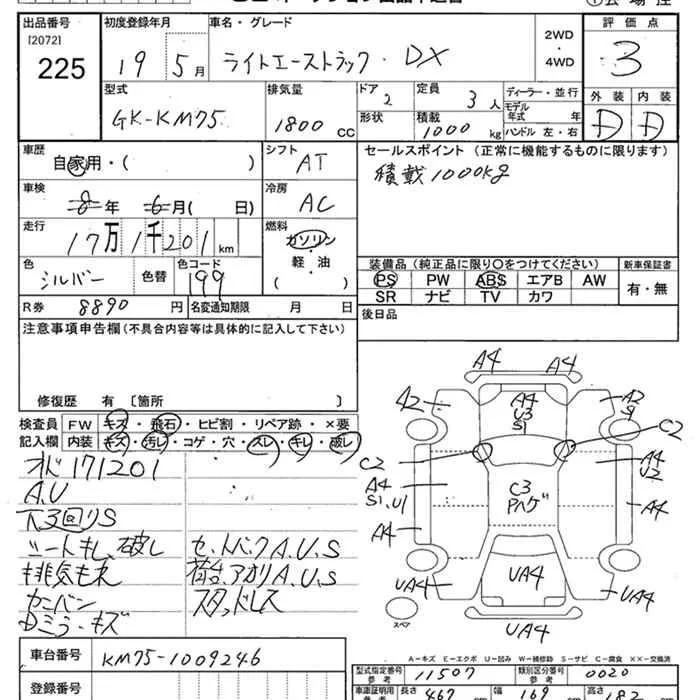 出品番号
[2072]
225
初度登録年月
19 年 5 月
車名・グレード
ライトエーストラック・DX
2WD
・
4WD
評価点
3
型式
GK-KM75
排気量
1800 cc
ドア
2
形状
定員
3 人
積載
1000 kg
ディーラー・並行
モデル
年式 年
ハンドル 左・右
外装 内装
D D
車歴
自家用・( )
シフト
AT
セールスポイント (正常に機能するものに限ります)
積載1000kg
車検
8年 6月( 日)
冷房
AC
走行
17万1千201 km
燃料
ガソリン
・
軽・油
( )
色
シルバー 色替
色コード
199
装備品(純正品に限り〇をつけてください)
新車保証書
PS PW ABS エアB AW
SR ナビ TV カワ
有・無
R券 8890 円
名変通知期限 月 日
後日品
注意事項申告欄(不具合内容等は具体的に記入して下さい)
修復歴 有〔箇所 〕
検査員
記入欄
FW キズ・飛石・ヒビ割・リペア跡・×要
内装 キズ・汚レ・コゲ・穴・スレ・キレ・破レ
オド171201
A.U
下3回りS
シートもし、破レ
排気もれ
カンバン
Dミラーキズ
セットバックA.U.S
荷台、アオリA.U.S
スタッドレス
A4 A4
A2
A4
U3
S1
A2
S
C2
C2
A4
S1.U1
A4
U2
C3
Pハゲ
A4
A4
UA4
UA4
UA4
UA4
スペア
A-キズ E-エクボ U-凹み W-補修跡 S-サビ C-腐食 ××-交換済
車台番号
KM75-1009246
登録番号
型式指定番号
参考
11507
類別区分番号
参考
0020
車庫証明用
参考
長さ 467 cm
幅 169 cm
高さ 182 cm